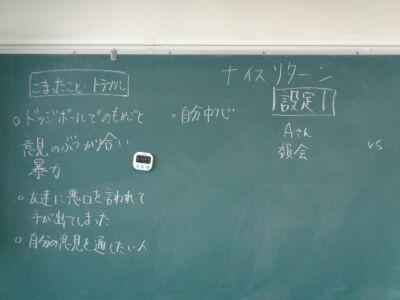 こまったこと・トラブル
○ドッジボールでのもめごと
意見のぶつかり合い
暴力
○友達に悪口を言われて
手が出てしまった
○自分の意見を通したい人
○自分中心
ナイスリターン
設定1
Aさん
VS